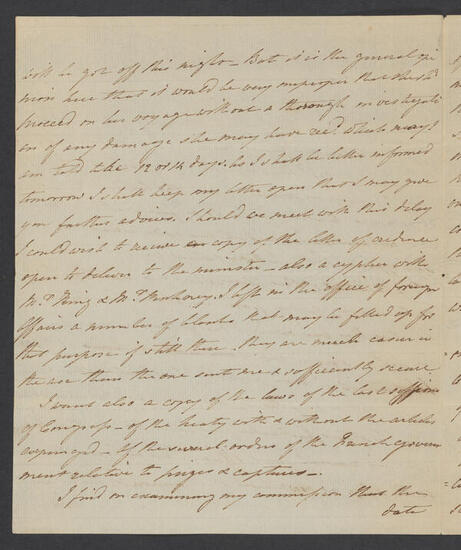 will be got off this night – But it is the general opi
nion here that it would be very improper that she sh<sup>d</sup>
proceed on her voyage without a thorough investigati
on of any damage she may have rec<sup>d</sup>. which may I
am told take 12 or 14 days. As I shall be better informed
tomorrow I shall keep my letter open that I may give
you further advices. Should we meet with this delay
I could wish to receive a copy of the letter of credence
open to deliver to the minister – also a cypher with
M<sup>r</sup>. King & M<sup>r</sup>. I left in the office of foreign
affairs a number of blanks that may be filled up for
that purpose if still there. they are much easier in
the use than the one sent me & sufficiently secure
I want also a copy of the laws of the last session
of Congress – of the treaty with & without the articles
expunged – of the several orders of the French govern
ment relative to prizes & captures –
I find on examining my commission that the
date